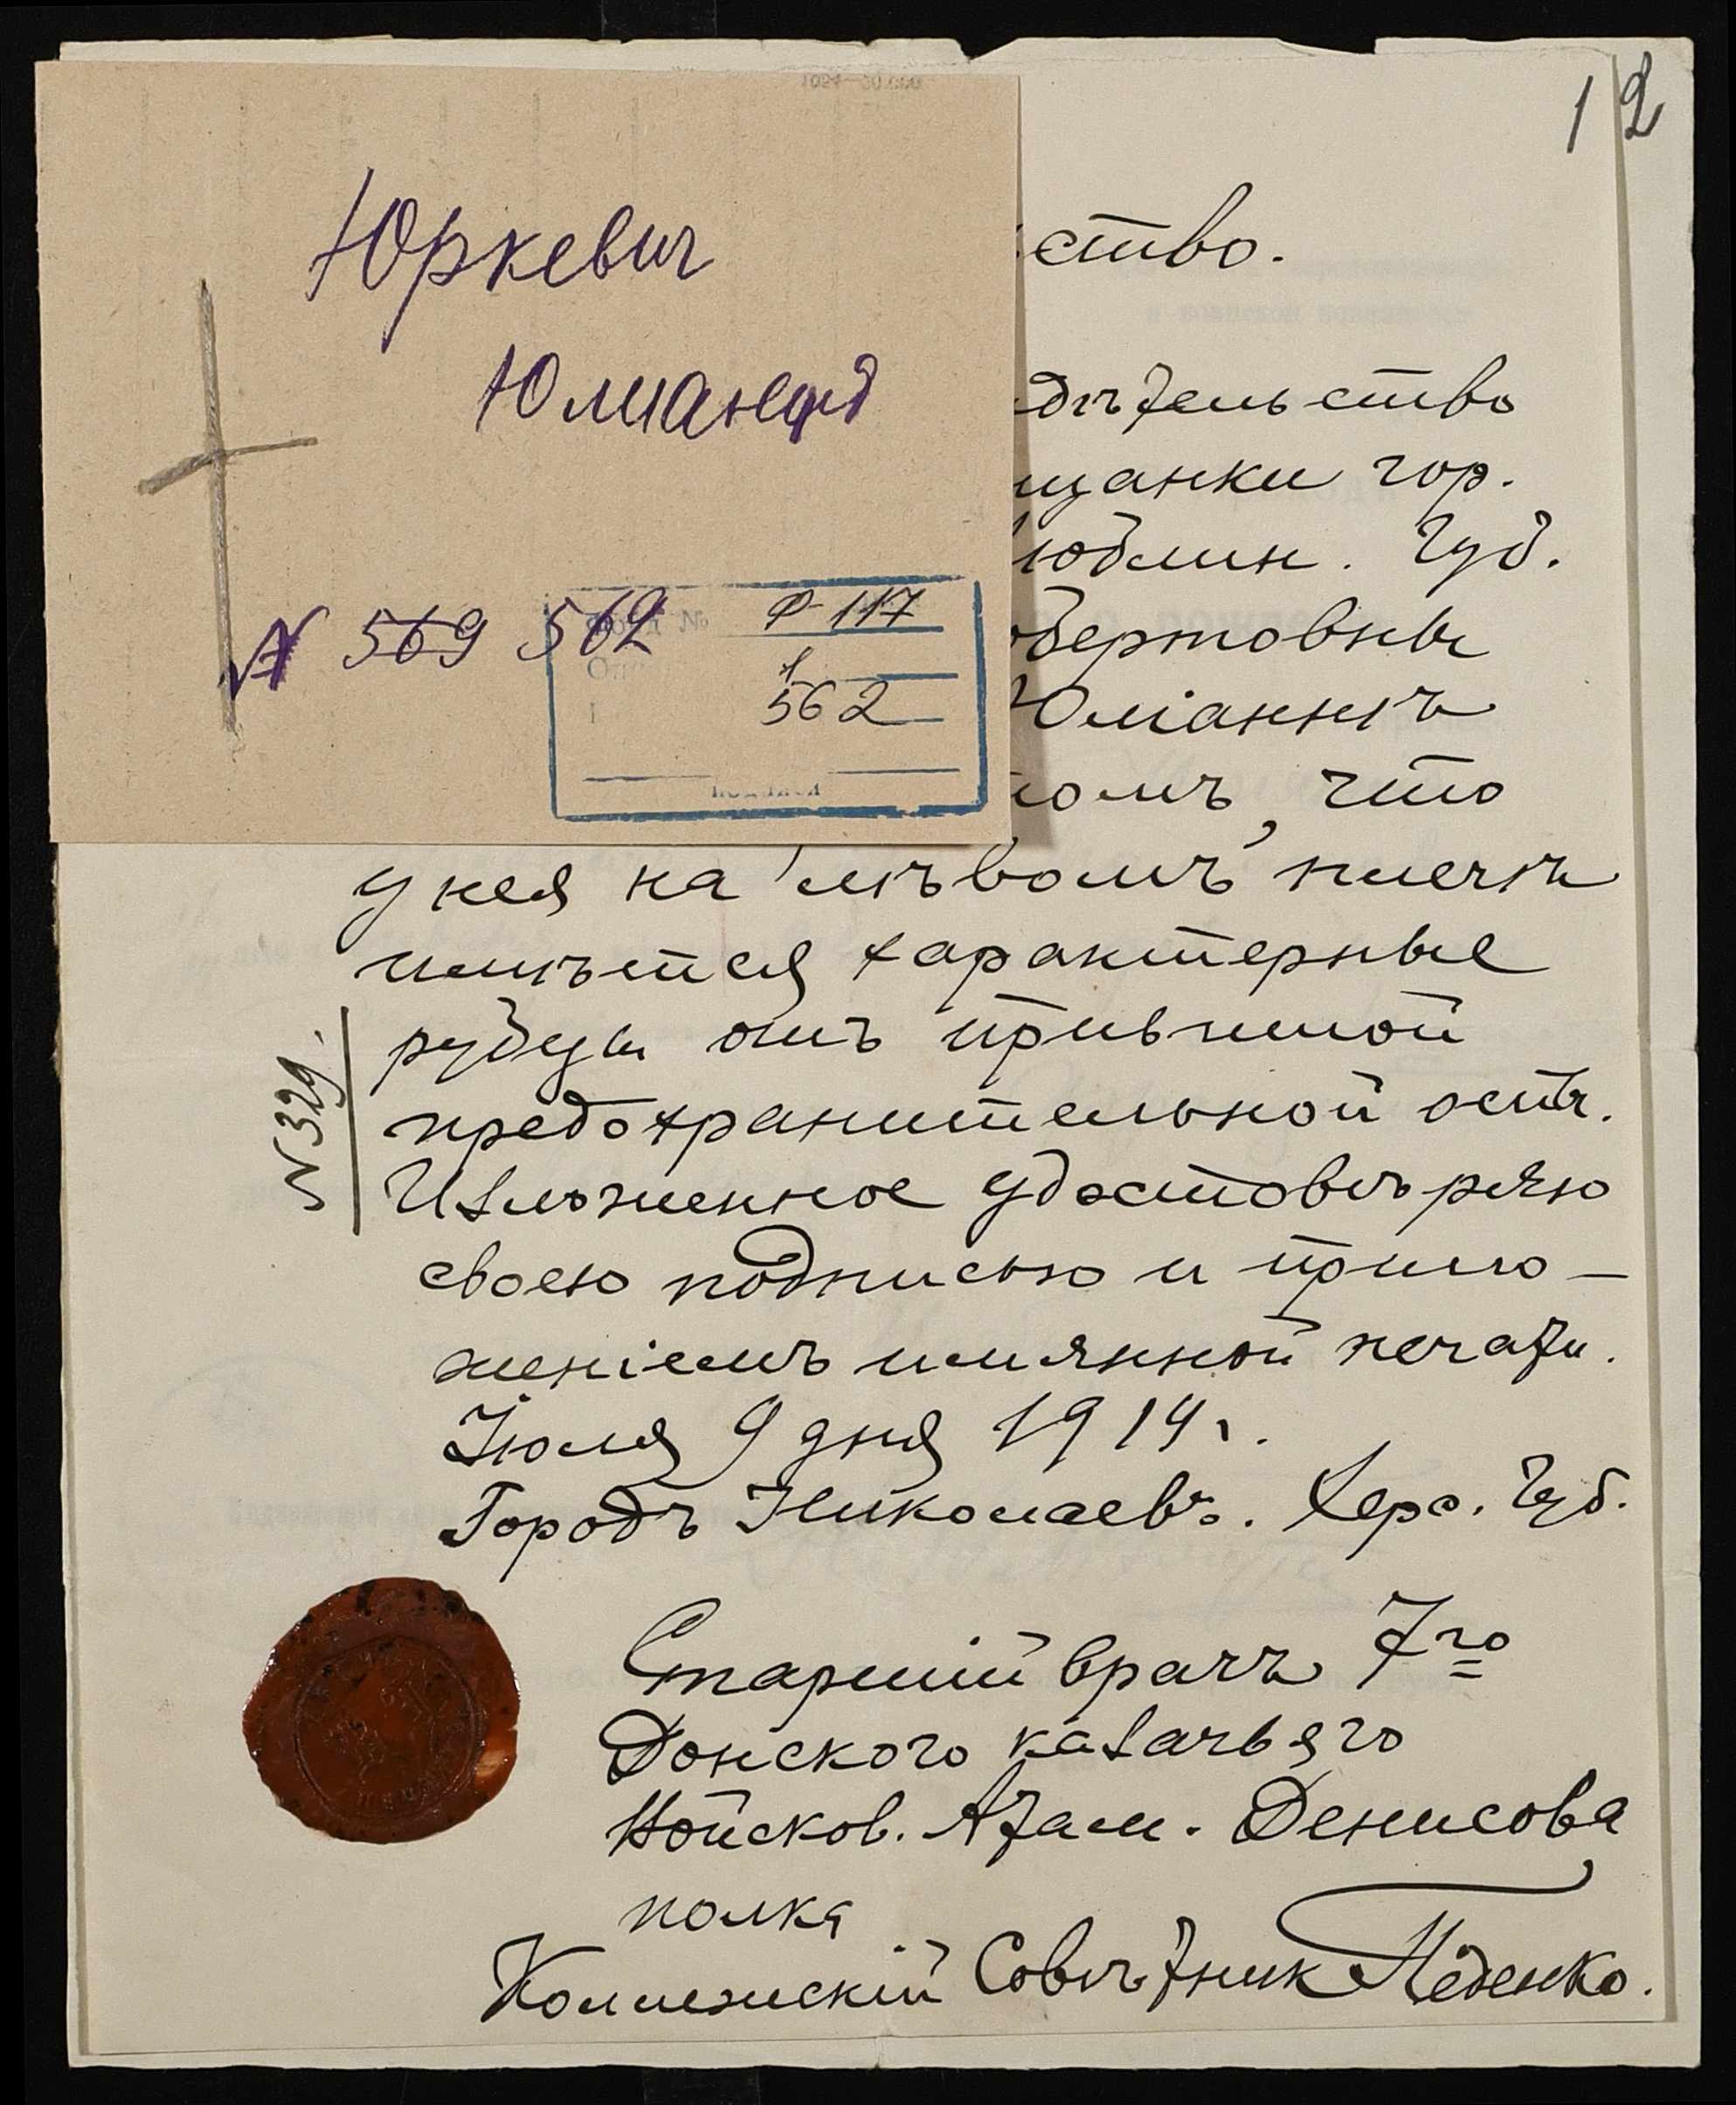 12
Юркевич
Юлианна
№ 569 562
Ф-117
1
562
ство.
дѣтельство
щанки гор.
юблин. Губ.
бертовнѣ
Юліаннѣ
томъ, что
у нея на лѣвомъ плечѣ
имѣтся характерные
рубцы отъ привитой
предохранительной оспы.
Изложенное удостовѣряю
своею подписью и прило-
женіемъ имянной печати.
Іюля 9 дня 1914 г.
Городъ Николаевъ. Херс. Губ.
№329.
Старшій врачъ 7го
Донского казачьяго
Войсков. Атам. Денисова
полка
Коллежскій Совѣтник